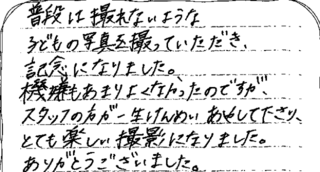 普段は撮れないような
子どもの写真を撮っていただき、
記念になりました。
機嫌もあまりよくなかったのですが、
スタッフの方が一生けんめいあやして下さり、
とても楽しい撮影になりました。
ありがとうございました。